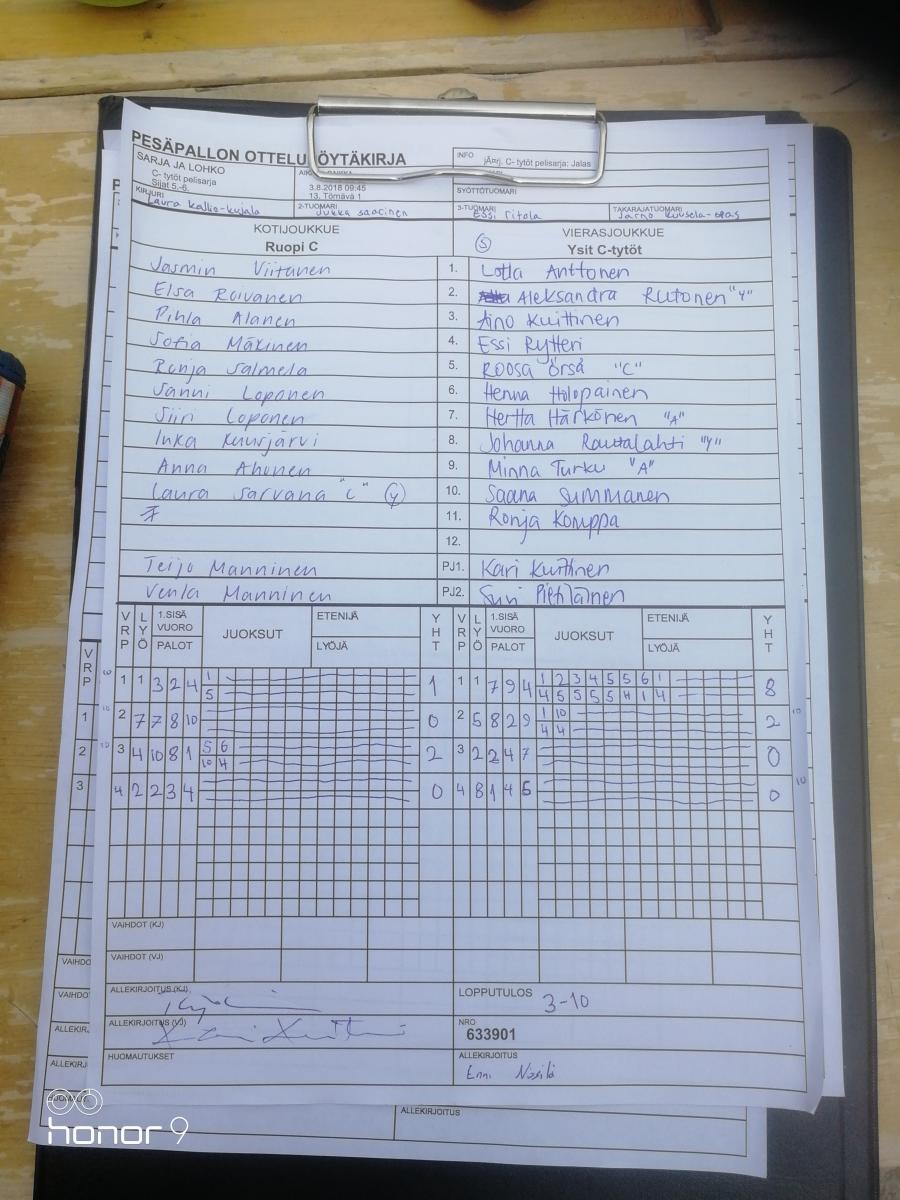 PESÄPALLON OTTELU ÖYTÄKIRJA
SARJA JA LOHKO
C- tytöt pelisarja
Sijat 5.-6.
3.8.2018 09:45
13, Törnävä 1
INFO
jÄ¤rj. C- tytöt pelisarja: Jalas
SYÖTTÖTUOMARI
KIRJURI
Laura Kallio-kujala
2-TUOMARI
Jukka saarinen
3-TUOMARI
Essi ritola
TAKARAJATUOMARI
KOTIJOUKKUE
Ruopi C
VIERASJOUKKUE
Ysit C-tytöt
S
Jasmin Viitanen 1. Lotta Anttonen
Elsa Roivanen 2. Aleksandra Rutonen "Y"
Pihla Alanen 3. Aino Kuittinen
Sofia Mäkinen 4. Essi Rytteri
Ronja Salmela 5. Roosa Örså "C"
Sanni Loponen 6. Henna Holopainen
Siiri Loponen 7. Hertta Härkönen "A"
Inka Kuusjärvi 8. Johanna Rauttalahti "Y"
Anna Ahonen 9. Minna Turku "A"
Laura Sarvana "C" 10. Saana Summanen
11. Ronja Komppa
12.
Teijo Manninen PJ1. Kari Kuittinen
Venla Manninen PJ2. Suvi Pietiläinen
VRP LYÖ 1.SISÄ VUORO PALOT JUOKSUT ETENIJÄ LYÖJÄ YHT VRP LYÖ 1.SISÄ VUORO PALOT JUOKSUT ETENIJÄ LYÖJÄ YHT
1 1 3 2 4 1 1 1 1 7 9 4 1 2 3 4 5 5 6 1 8
5 4 5 5 5 5 4 1 4
2 7 7 8 10 0 2 5 8 2 9 1 10 2
4 4
3 4 10 8 1 5 6 2 3 2 2 4 7 0
10 4
4 2 2 3 4 0 4 8 1 4 6 0
VAIHDOT (KJ)
VAIHDOT (VJ)
ALLEKIRJOITUS (KJ)
LOPPUTULOS 3-10
ALLEKIRJOITUS (VJ)
Kari Kuittinen
NRO
633901
HUOMAUTUKSET
ALLEKIRJOITUS
Enni
VRP
1
2
3
VAIHDO
VAIHDO
ALLEKIRJ
ALLEKIRJ
ALLEKIRJOITUS
honor 9